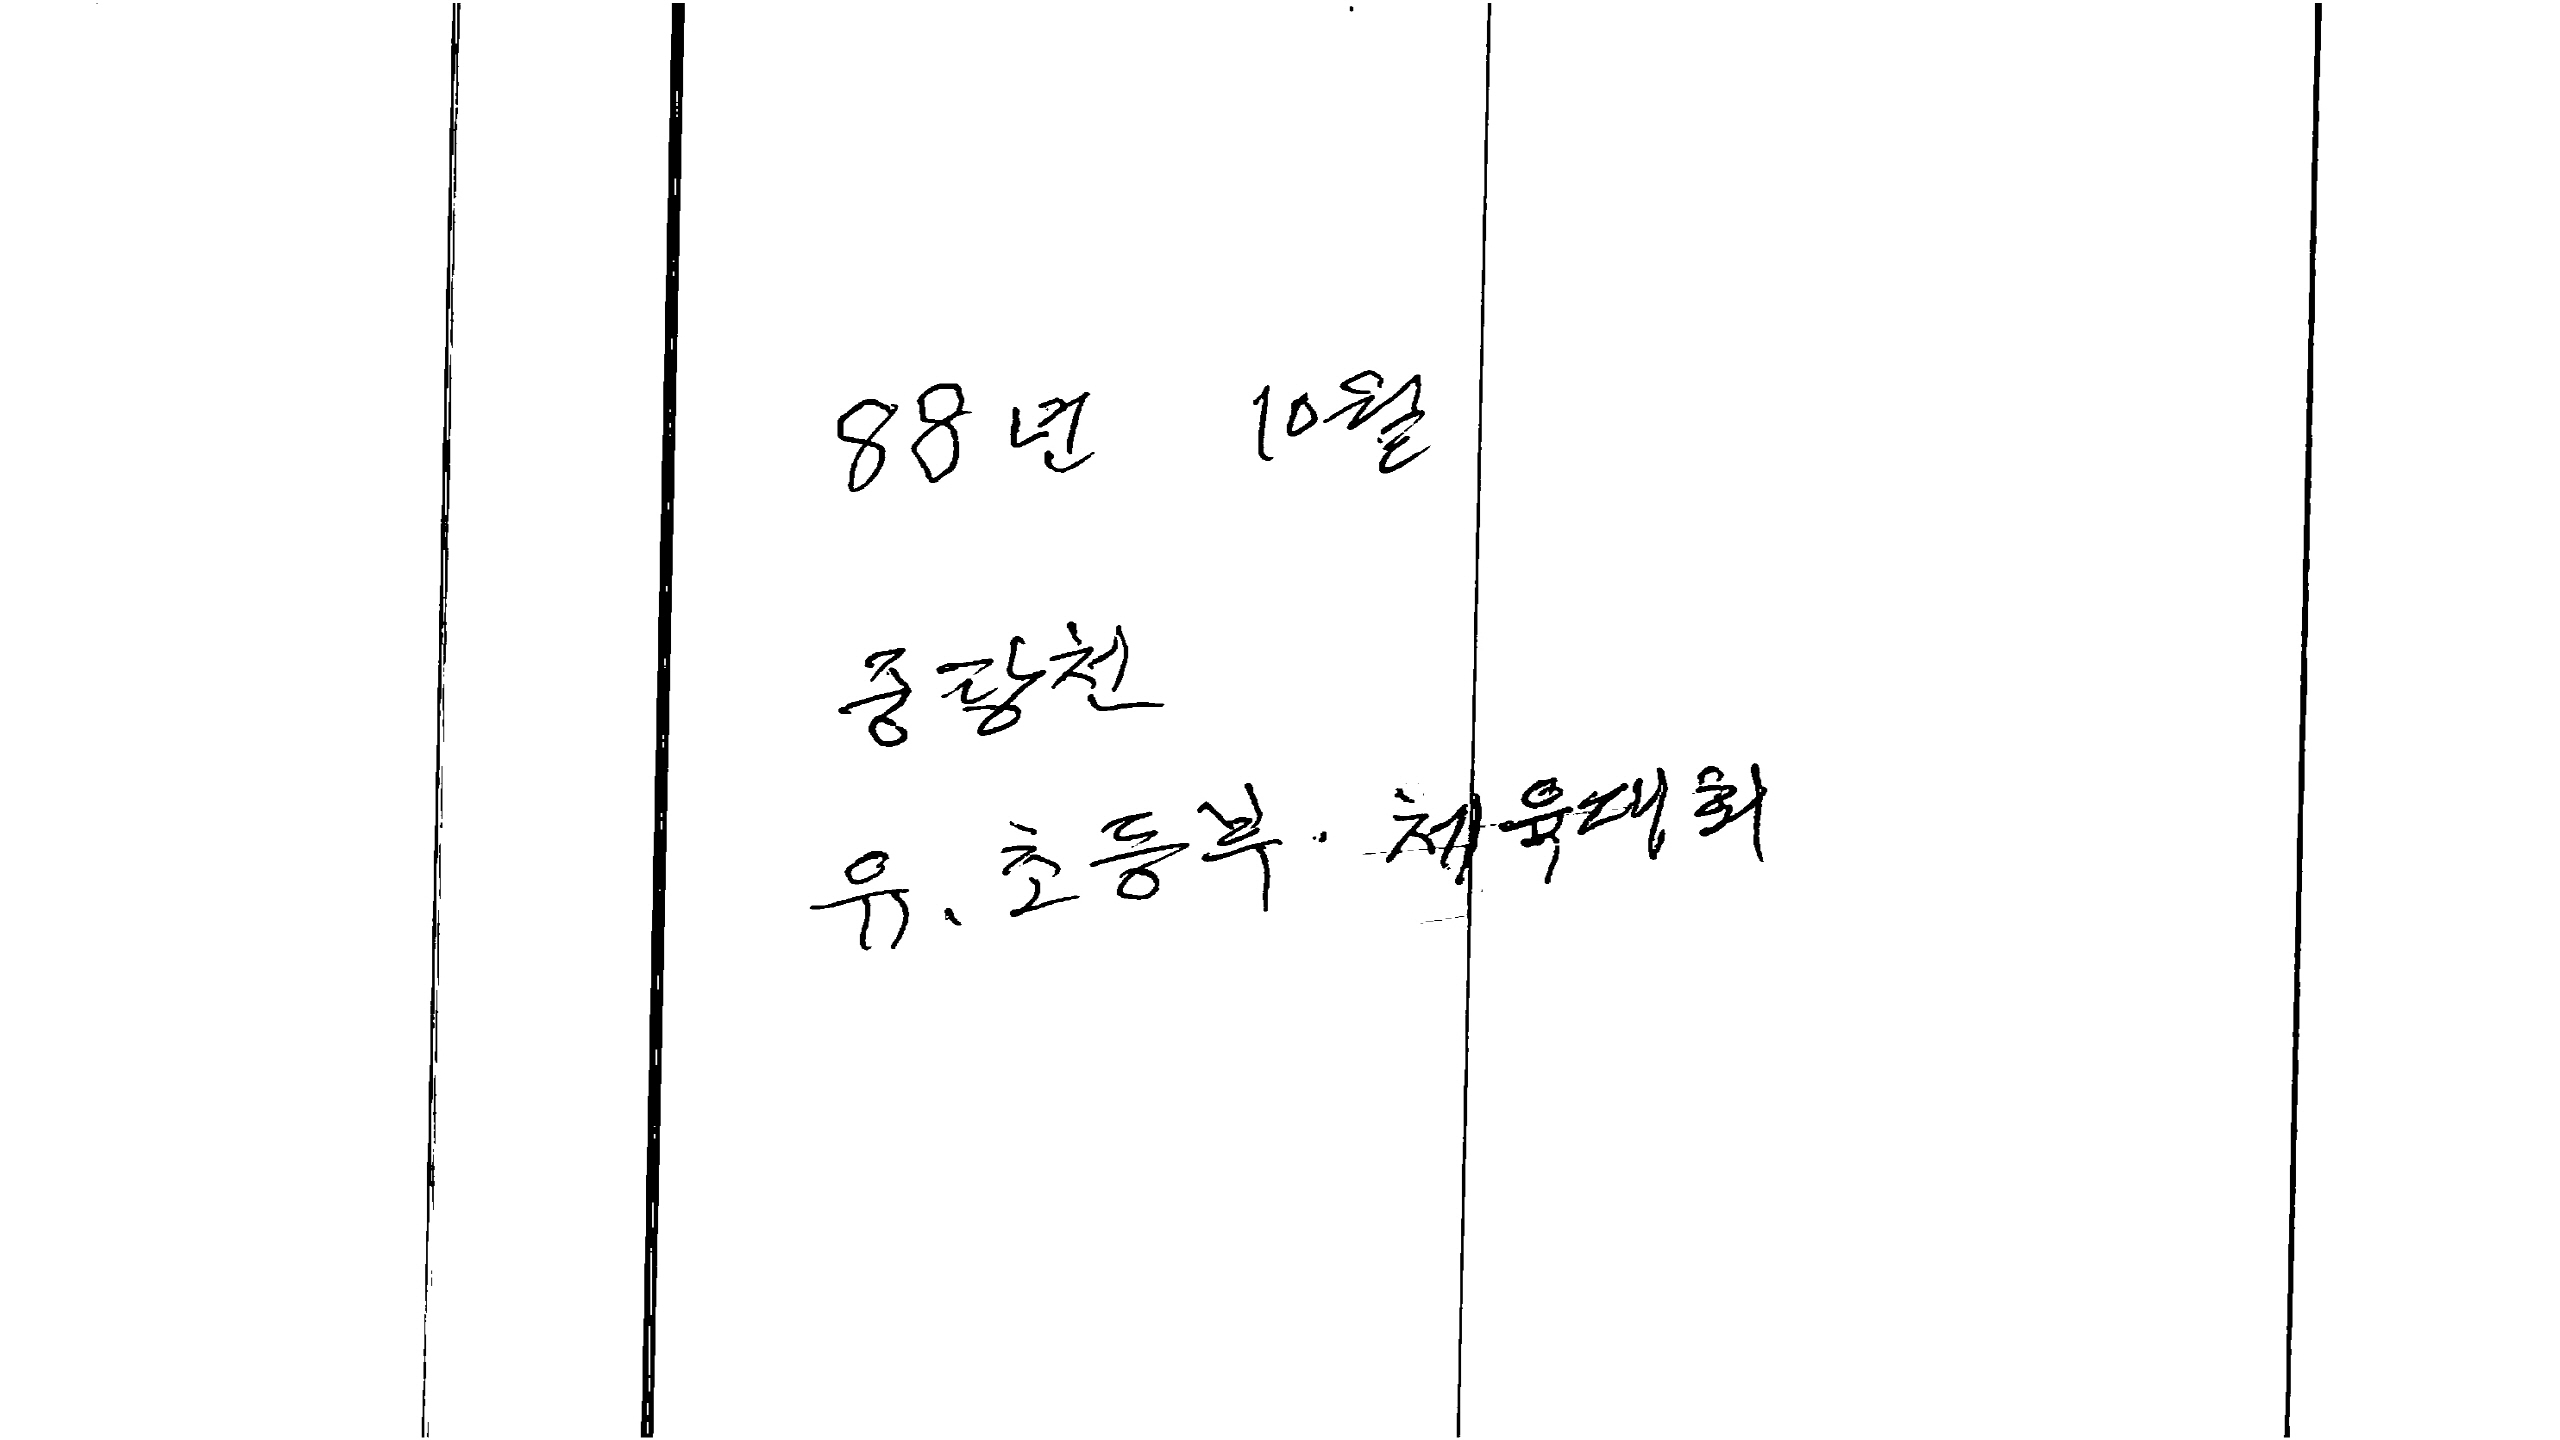 88년 10월
중랑천
유. 초등부. 체육대회